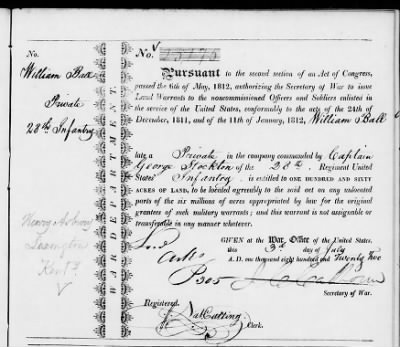 No.
William Ball
Private
28th Infantry
WAR DEPARTMENT.
Henry Asbury
Lexington
Kenty
No.
Pursuant to the second section of an Act of Congress,
passed the 6th of May, 1812, authorizing the Secretary of War to issue
Land Warrants to the noncommissioned Officers and Soldiers enlisted in
the service of the United States, conformably to the acts of the 24th of
December, 1811, and of the 11th of January, 1812, William Ball
late a Private in the company commanded by Captain
George Stockton of the 28th. Regiment United
States' Infantry is entitled to ONE HUNDRED AND SIXTY
ACRES OF LAND, to be located agreeably to the said act on any unlocated
parts of the six millions of acres appropriated by law for the original
grantees of such military warrants; and this warrant is not assignable or
transferable in any manner whatever.
GIVEN at the War Office of the United States,
this 3rd day of July
A. D. one thousand eight hundred and Twenty Two
P 305 J C Calhoun
Secretary of War.
Registered.
Clerk.